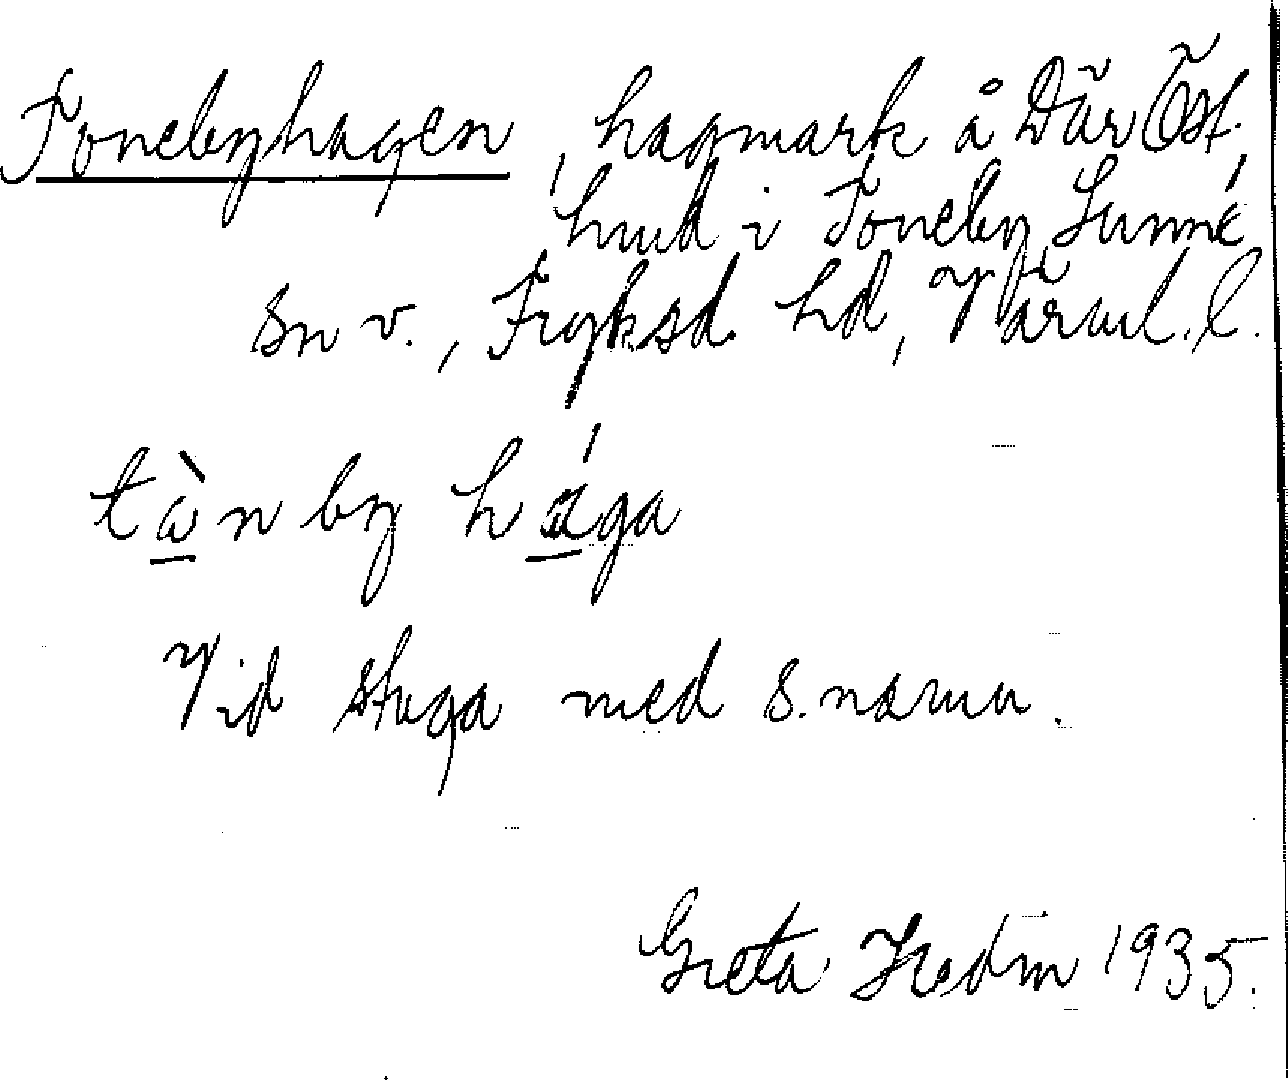 Tonebyhagen, hagmark å Där Öst,
hud i Toneby Sunne
sn v., Fryksd. hd, Värml. l.
tànby hága
Vid stuga med s. namn.
Greta Hedm 1935.